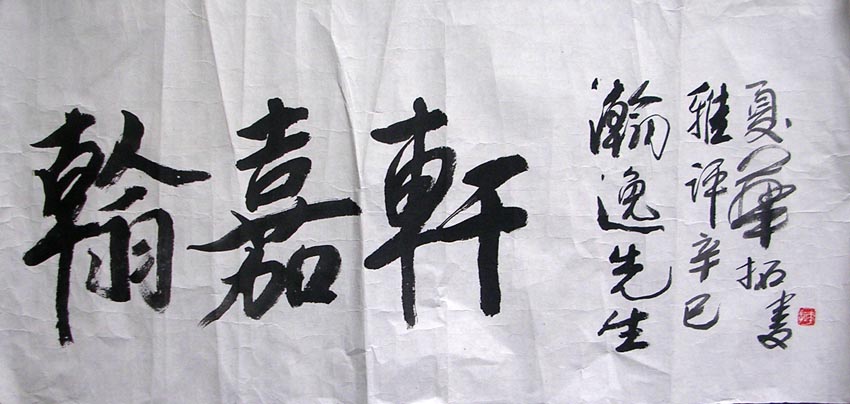 翰嘉軒
瀚逸先生
雅評辛巳
夏華拓书